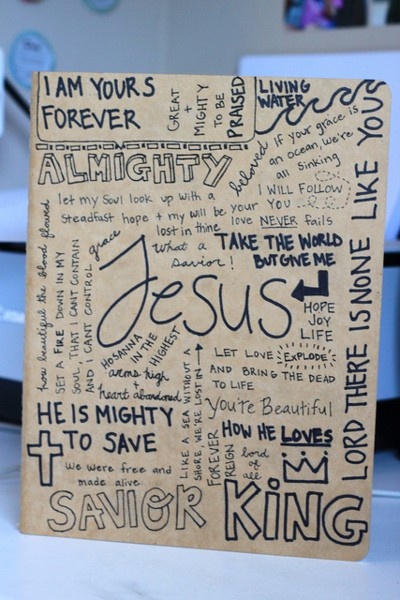 I AM YOURS
FOREVER
GREAT
+
MIGHTY
TO BE
PRAISED
LIVING
WATER
ALMIGHTY
beloved
if your grace is
an ocean, we're
all sinking
I WILL FOLLOW
YOU
let my soul look up with a
steadfast hope + my will be
lost in thine
your love NEVER fails
LORD THERE IS NONE LIKE YOU
how beautiful the blood flowed
SET A FIRE DOWN IN MY
SOUL, THAT I CANT CONTAIN
AND I CANT CONTROL
grace
what a
savior!
TAKE THE WORLD
BUT GIVE ME
Jesus
HOPE
JOY
LIFE
HOSANNA
IN THE
HIGHEST
arms high
+
heart abandoned
LIKE A SEA WITHOUT A
SHORE, WE'RE LOST IN
LET LOVE EXPLODE
AND BRING THE DEAD
TO LIFE
you're Beautiful
HE IS MIGHTY
TO SAVE
FOREVER
REIGN
HOW HE LOVES
lord
of
all
we were free and
made alive
SAVIOR
KING